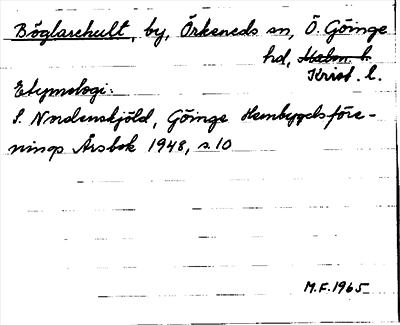 Böglarehult, by, Örkeneds sn, Ö. Göinge
hd, Malm. l.
Krist. l.
Etymologi:
S. Nordenskjöld, Göinge Hembygdsföre-
nings Årsbok 1948, s. 10
M.F. 1965